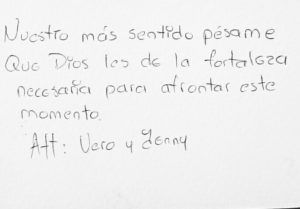 Nuestro más sentido pésame
Que Dios les de la fortaleza
necesaria para afrontar este
momento.
Att: Vero y Jenny